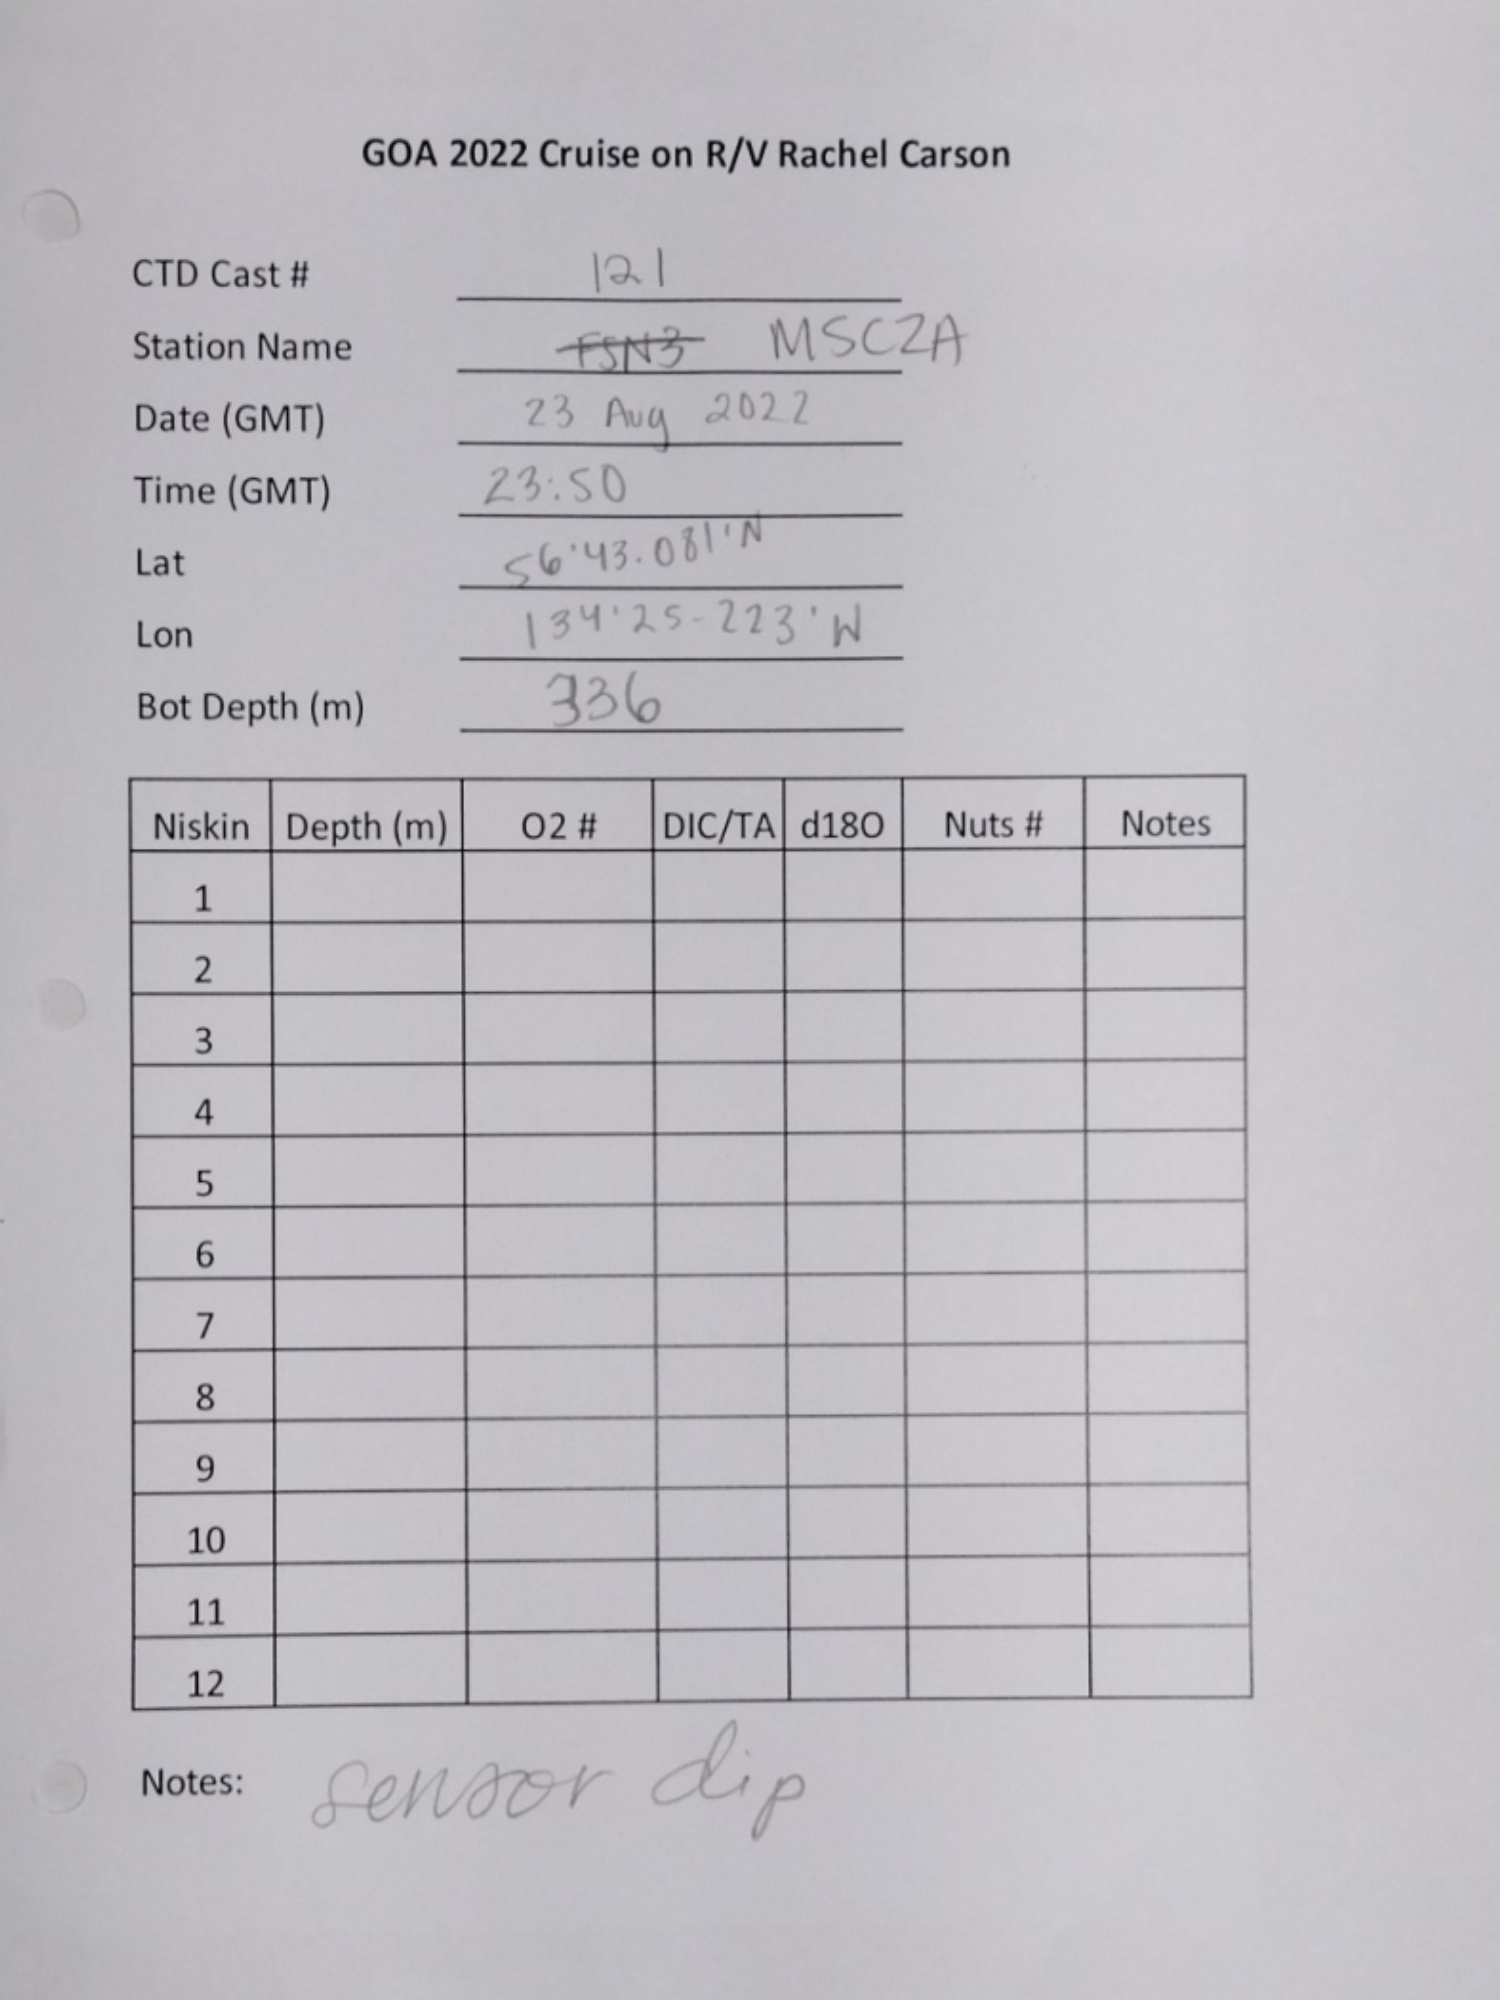 GOA 2022 Cruise on R/V Rachel Carson
CTD Cast # 121
Station Name FSN3 MSCZA
Date (GMT) 23 Aug 2022
Time (GMT) 23:50
Lat 56°43.081'N
Lon 134°25.223'W
Bot Depth (m) 336
Niskin Depth (m) O2 # DIC/TA d18O Nuts # Notes
1
2
3
4
5
6
7
8
9
10
11
12
Notes: sensor dip